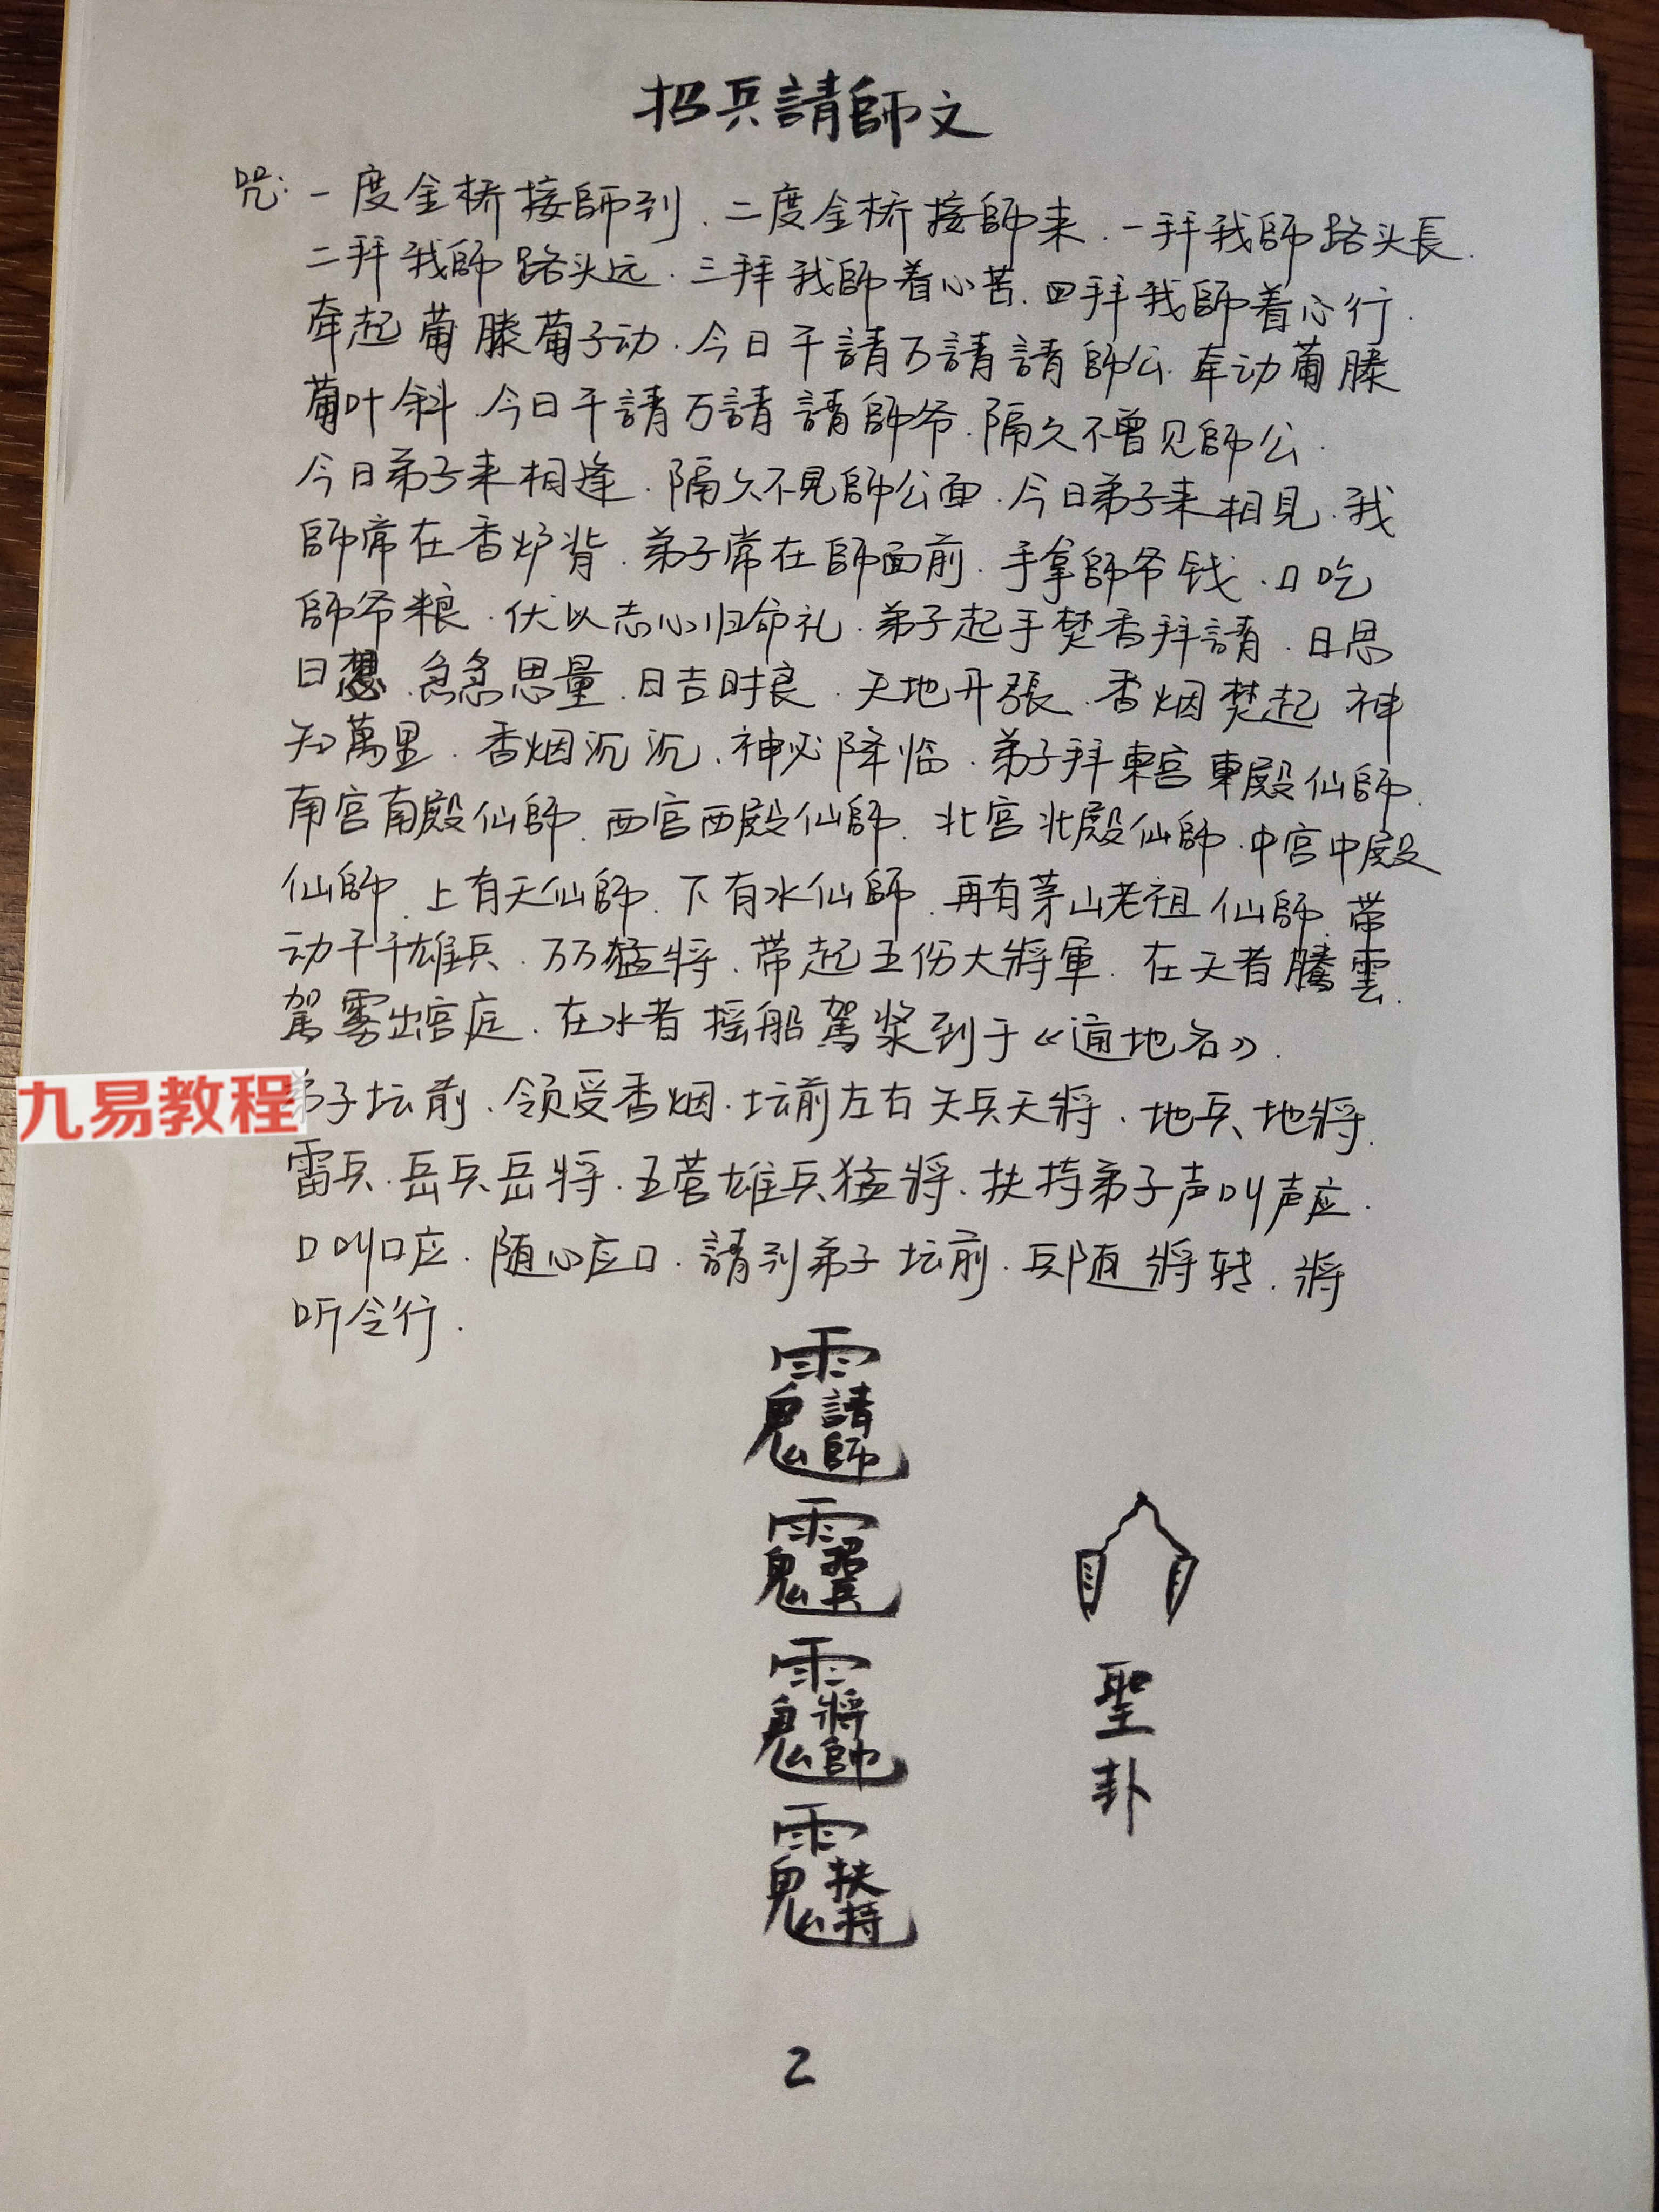 招兵請師文
咒:一度金桥接師到.二度金桥接師来.一拜我師路头長.
二拜我師路头远.三拜我師着心苦.四拜我師着心行.
牵起葡滕葡子动.今日千請万請請師公.牵动葡滕
葡叶斜.今日千請万請請師爷.隔久不曾见師公.
今日弟子来相逢.隔久不見師公面.今日弟子来相見.我
師常在香炉背.弟子常在師面前.手拿師爷钱.口吃
師爷粮.伏以志心归命礼.弟子起手焚香拜請.日思
日想.急急思量.日吉时良.天地开張.香烟焚起神
知萬里.香烟沉沉.神必降临.弟子拜東宫東殿仙師.
南宫南殿仙師.西宫西殿仙師.北宫北殿仙師.中宫中殿
仙師.上有天仙師.下有水仙師.再有茅山老祖仙師.带
动千千雄兵.万万猛將.带起五伤大將軍.在天者騰雲
駕雾出宫庭.在水者摇船駕桨到于《通地名》.
弟子坛前.领受香烟.坛前左右天兵天將.地兵地將.
雷兵.岳兵岳將.五营雄兵猛將.扶持弟子声叫声应.
口叫口应.随心应口.請到弟子坛前.兵随將转.將
听令行.
九易教程
雨鬼請師
雨鬼招兵
雨鬼將帥
雨鬼扶持
聖卦
2